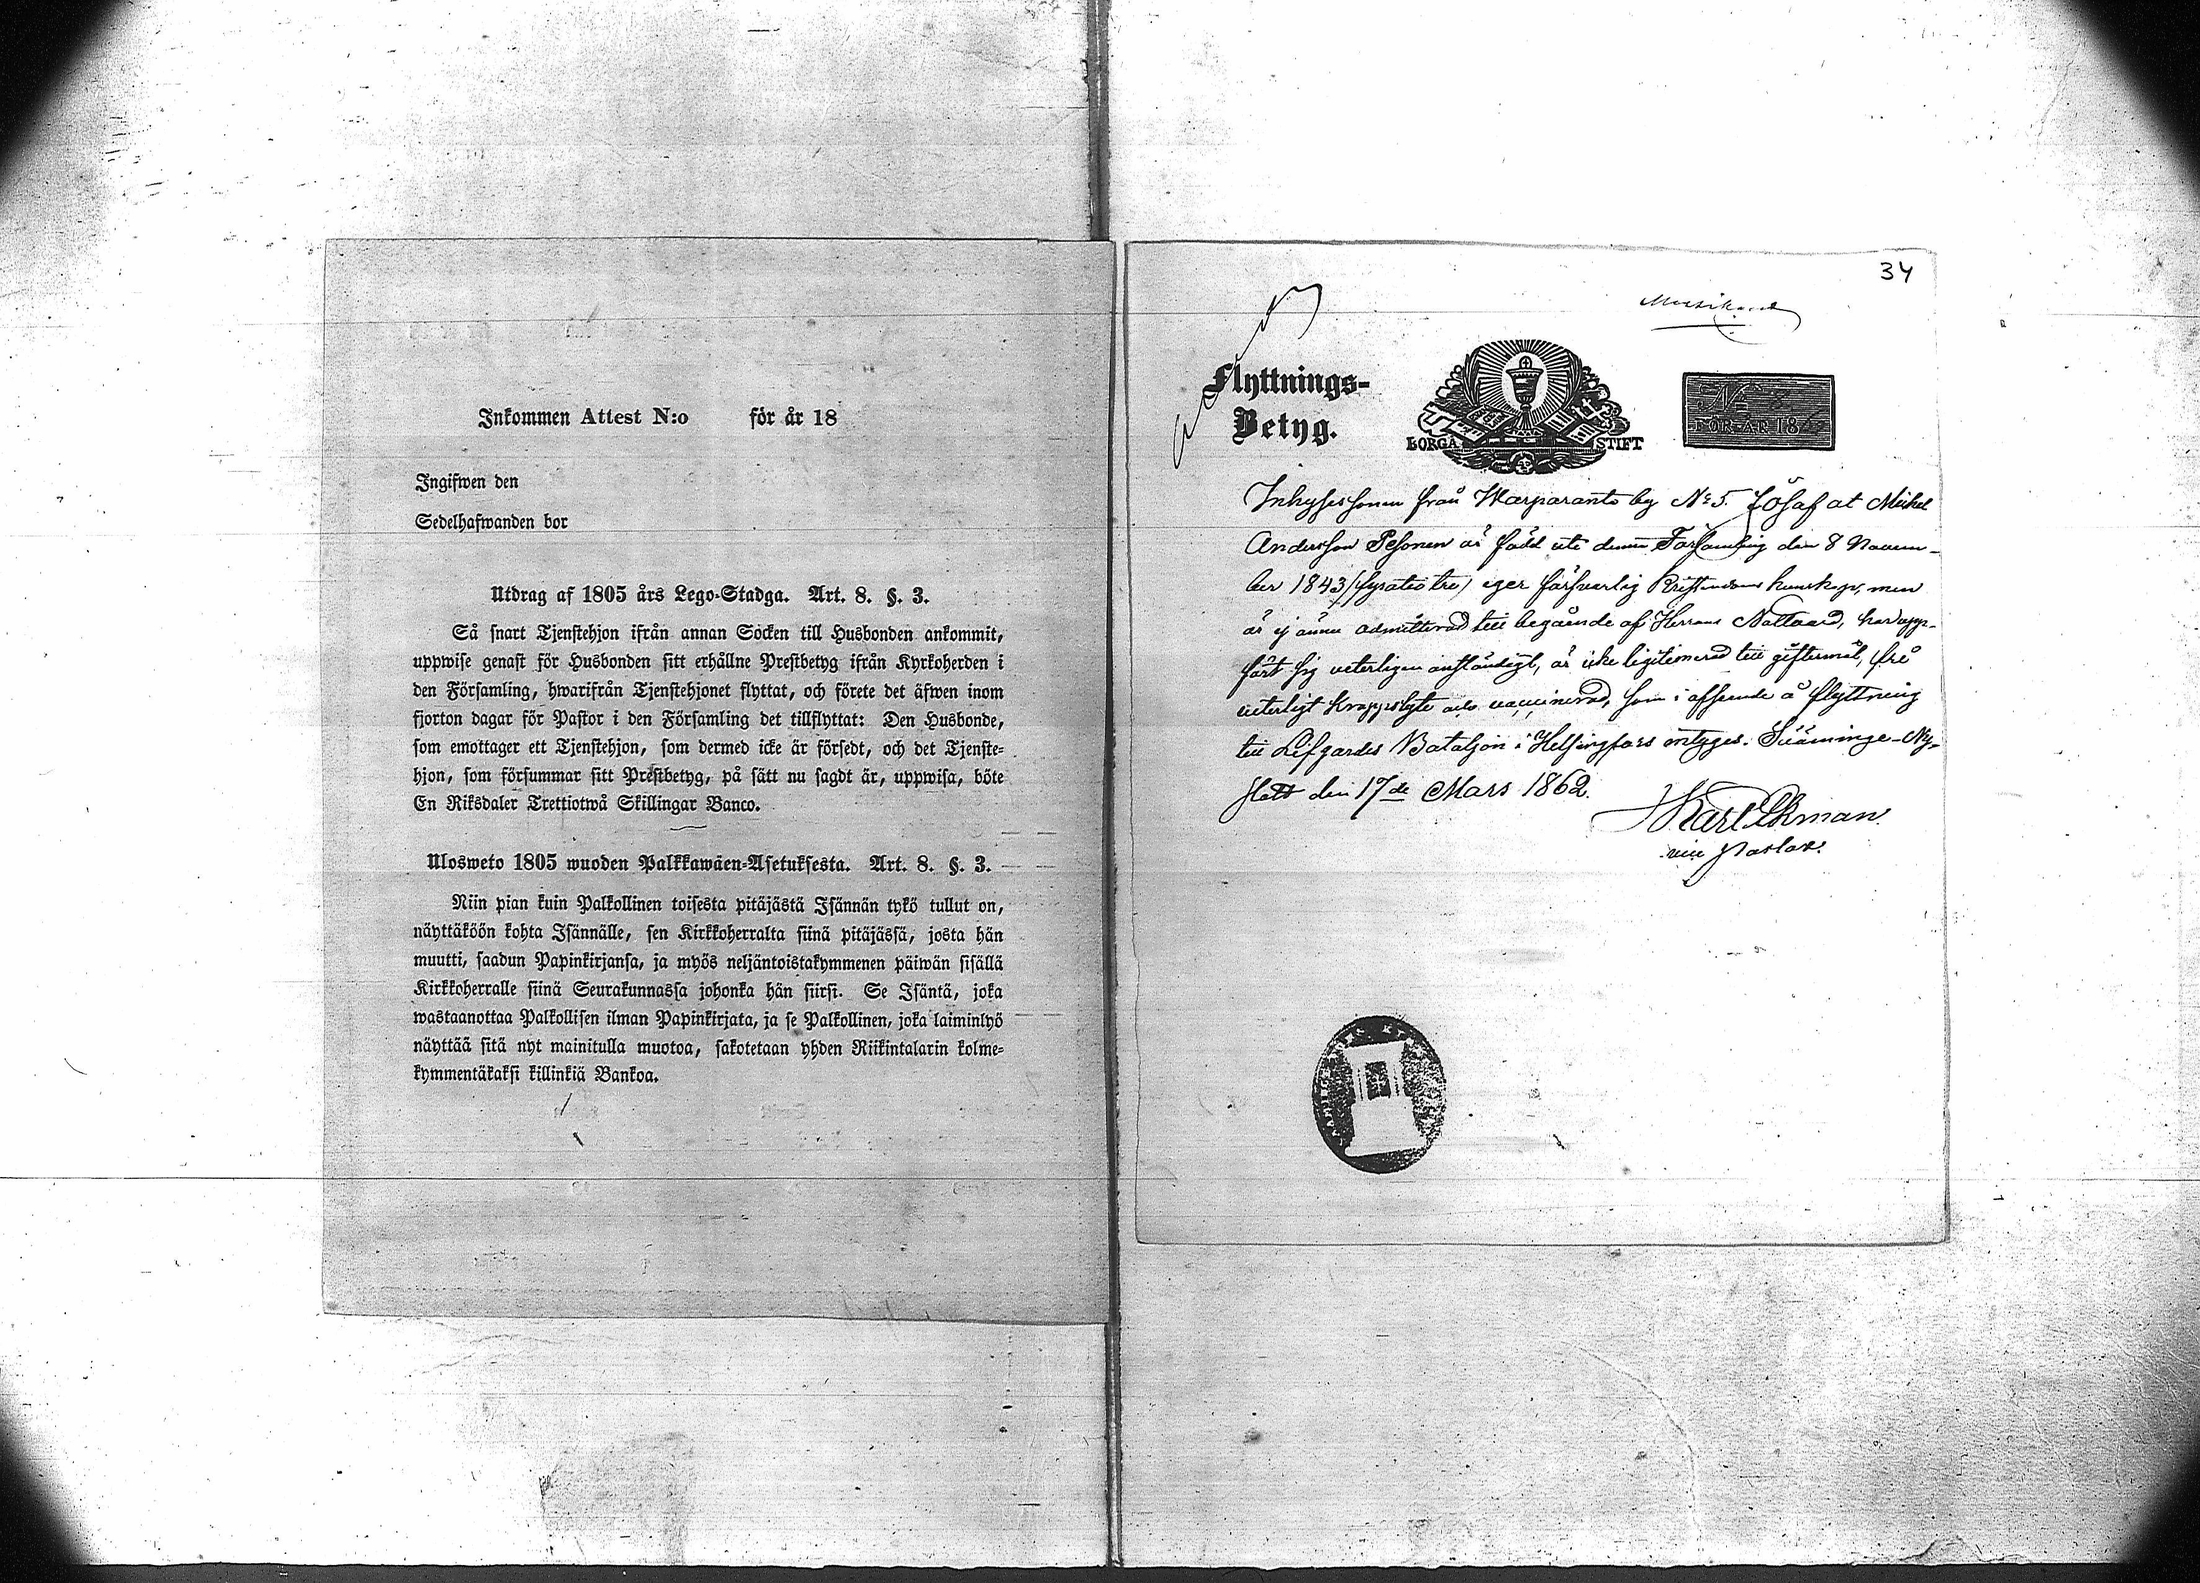 Inkommen Attest N:o för år 18
Ingifwen den
Sedelhafwanden bor
Utdrag af 1805 års Lego-Stadga. Art. 8. §. 3.
Så snart Tjenstehjon ifrån annan Socken till Husbonden ankommit,
uppwise genast för Husbonden sitt erhållne Prestbetyg ifrån Kyrkoherden i
den Församling, hwarifrån Tjenstehjonet flyttat, och förete det äfwen inom
fjorton dagar för Pastor i den Församling det tillflyttat: Den Husbonde,
som emottager ett Tjenstehjon, som dermed icke är försedt, och det Tjenste-
hjon, som försummar sitt Prestbetyg, på sätt nu sagdt är, uppwisa, böte
En Riksdaler Trettiotwå Skillingar Banco.
Ulosweto 1805 wuoden Palkkawäen-Asetuksesta. Art. 8. §. 3.
Niin pian kuin Palkollinen toisesta pitäjästä Isännän tykö tullut on,
näyttäköön kohta Isännälle, sen Kirkkoherralta siinä pitäjässä, josta hän
muutti, saadun Papinkirjansa, ja myös neljäntoistakymmenen päiwän sisällä
Kirkkoherralle siinä Seurakunnassa johonka hän siirsi. Se Isäntä, joka
wastaanottaa Palkollisen ilman Papinkirjata, ja se Palkollinen, joka laiminlyö
näyttää sitä nyt mainitulla muotoa, sakotetaan yhden Riikintalarin kolme-
kymmentäkaksi killinkiä Bankoa.
34
Flyttnings-
Betyg.
BORGÅ STIFT
No
FÖR ÅR 186
Inhysessonen från Warparanta by No 5. Josafat Mickel
Andersson Pesonen är född uti denna Församling den 8 Novem-
ber 1843 (fyratiotre) eger försvarlig Kristendoms kunskap, men
är ej ännu admitterad till begående af Herrans Nattvard, har upp-
fört sig veterligen anständigt, är icke legitimerad till giftermål, fri
veterligt kroppslyte och vaccinerad, som i afseende å flyttning
till Lifgardes Bataljon i Helsingfors intygas. Sääminge-Ny-
slott den 17de Mars 1862.
Karl Ekman
vice Pastor.